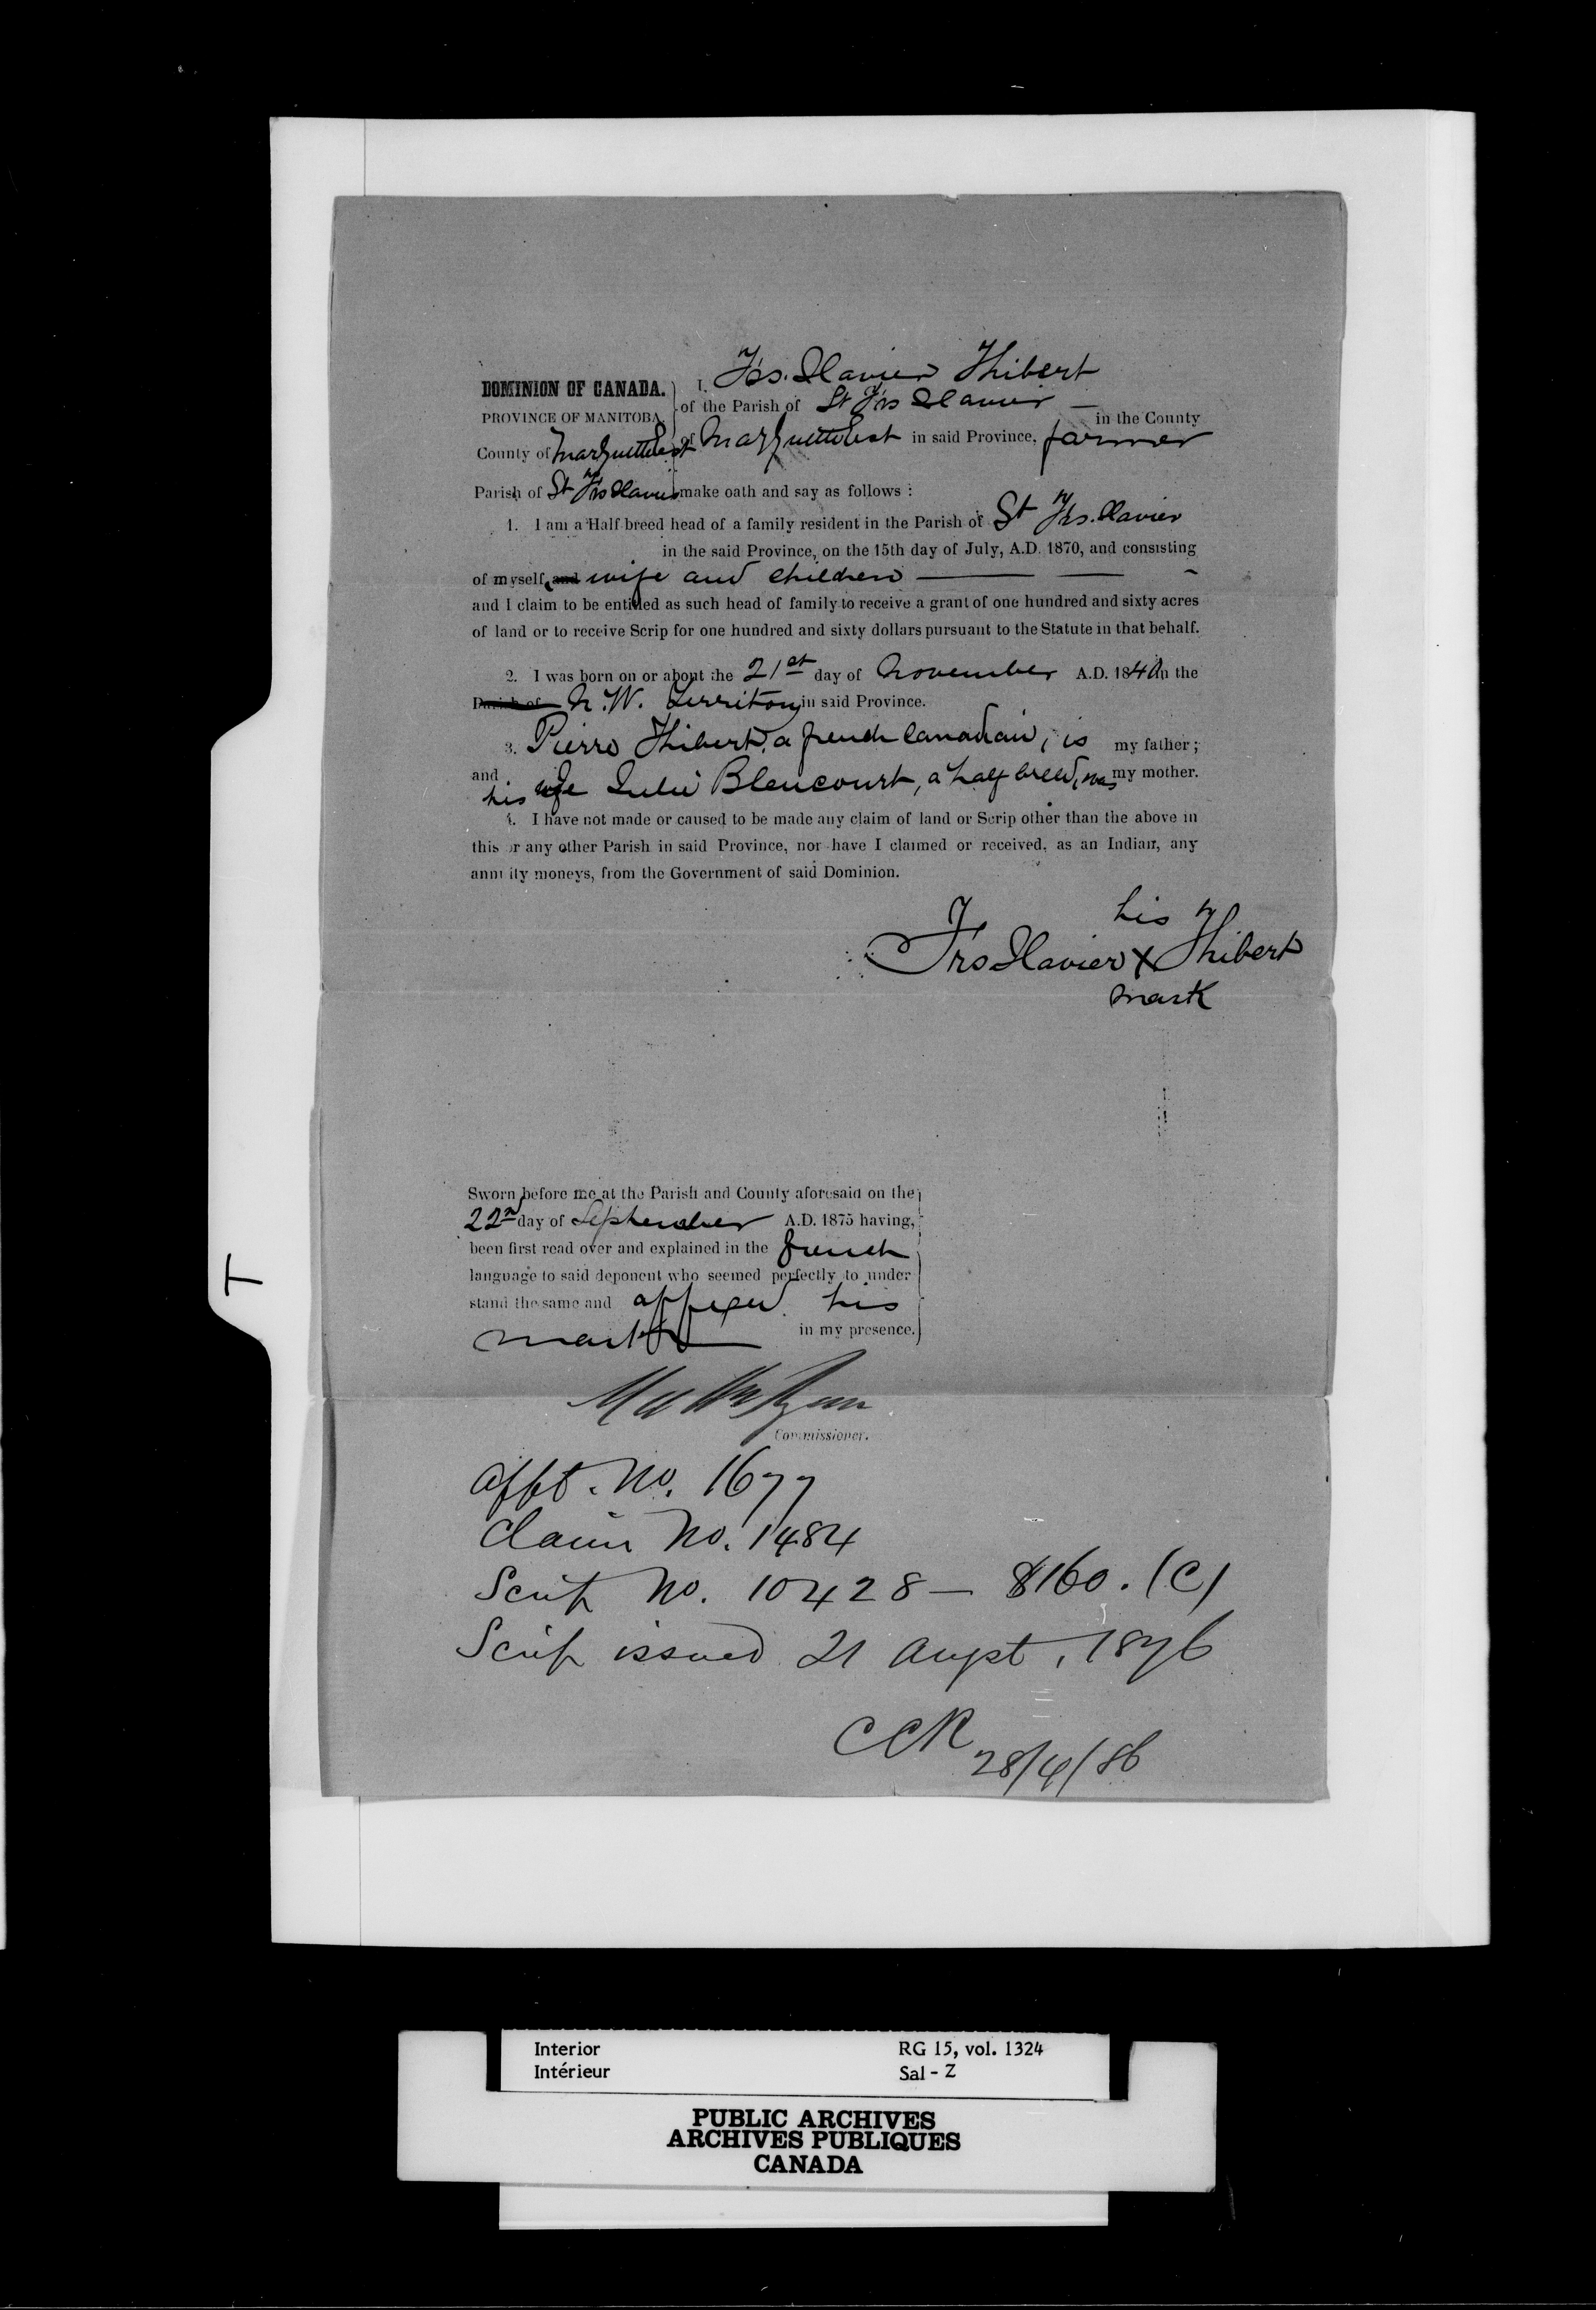 DOMINION OF CANADA.
PROVINCE OF MANITOBA.
County of Marquette East
Parish of St Frs Xavier
I, Frs. Xavier Thibert
of the Parish of St Frs Xavier — in the County
of Marquette East in said Province, farmer
make oath and say as follows :
1. I am a Half breed head of a family resident in the Parish of St Frs. Xavier
in the said Province, on the 15th day of July, A.D. 1870, and consisting
of myself, and wife and children
and I claim to be entitled as such head of family to receive a grant of one hundred and sixty acres
of land or to receive Scrip for one hundred and sixty dollars pursuant to the Statute in that behalf.
2. I was born on or about the 21st day of November A.D. 1840 in the
Parish of N. W. Territory in said Province.
3. Pierre Thibert, a french Canadian, is my father ;
and his wife Julie Blencourt, a half breed, was my mother.
4. I have not made or caused to be made any claim of land or Scrip other than the above in
this or any other Parish in said Province, nor have I claimed or received, as an Indian, any
annuity moneys, from the Government of said Dominion.
his
Frs Xavier X Thibert
mark
Sworn before me at the Parish and County aforesaid on the
22nd day of September A.D. 1875 having,
been first read over and explained in the french
language to said deponent who seemed perfectly to under
stand the same and affixed his
mark in my presence.
Commissioner.
Afft. No. 1677
Claim No. 1484
Scrip No. 10428 — $160. (C)
Scrip issued 21 Augst, 1876
CCR
28/4/86
T
Interior RG 15, vol. 1324
Intérieur Sal - Z
PUBLIC ARCHIVES
ARCHIVES PUBLIQUES
CANADA